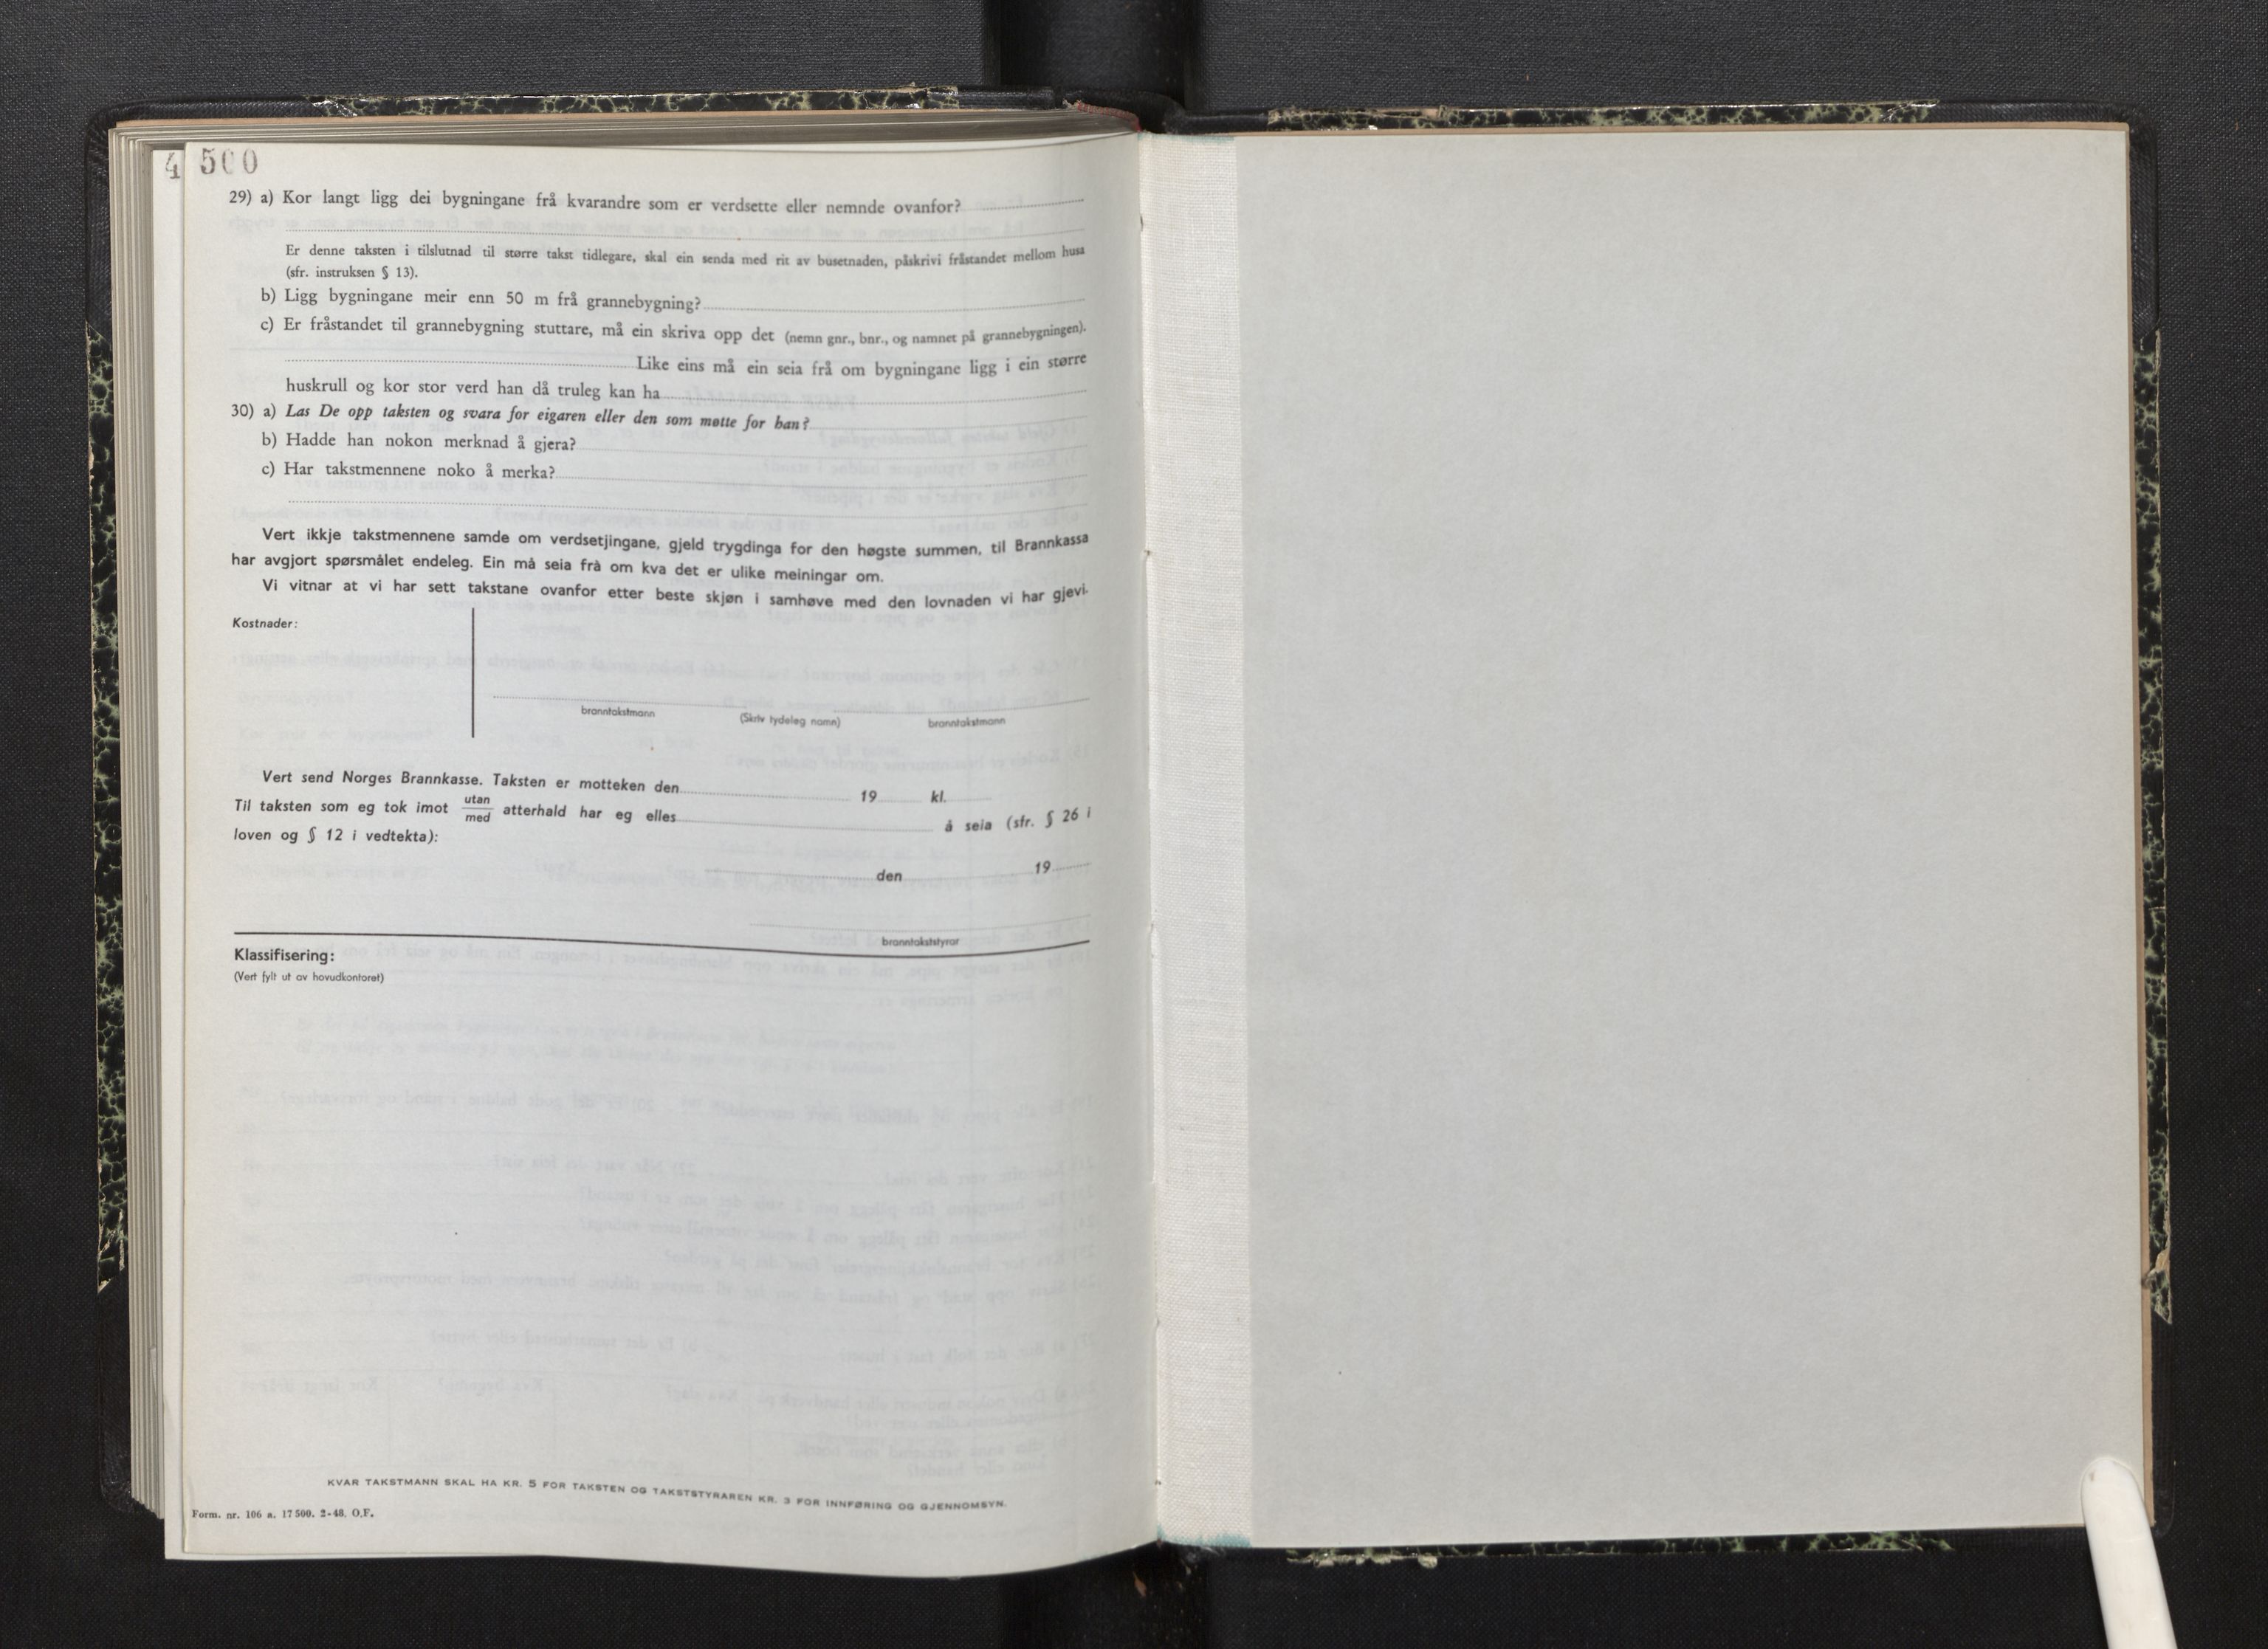 4 500
29) a) Kor langt ligg dei bygningane frå kvarandre som er verdsette eller nemnde ovanfor?
Er denne taksten i tilslutnad til større takst tidlegare, skal ein senda med rit av busetnaden, påskrivi fråstandet mellom husa
(sfr. instruksen § 13).
b) Ligg bygningane meir enn 50 m frå grannebygning?
c) Er fråstandet til grannebygning stuttare, må ein skriva opp det (nemn gnr., bnr., og namnet på grannebygningen).
Like eins må ein seia frå om bygningane ligg i ein større
huskrull og kor stor verd han då truleg kan ha
30) a) Las De opp taksten og svara for eigaren eller den som møtte for han?
b) Hadde han nokon merknad å gjera?
c) Har takstmennene noko å merka?
Vert ikkje takstmennene samde om verdsetjingane, gjeld trygdinga for den høgste summen, til Brannkassa
har avgjort spørsmålet endeleg. Ein må seia frå om kva det er ulike meiningar om.
Vi vitnar at vi har sett takstane ovanfor etter beste skjøn i samhøve med den lovnaden vi har gjevi.
Kostnader:
branntakstmann (Skriv tydeleg namn) branntakstmann
Vert send Norges Brannkasse. Taksten er motteken den 19 kl.
Til taksten som eg tok imot utan/med atterhald har eg elles å seia (sfr. § 26 i
loven og § 12 i vedtekta):
den 19
branntakststyrar
Klassifisering:
(Vert fylt ut av hovudkontoret)
KVAR TAKSTMANN SKAL HA KR. 5 FOR TAKSTEN OG TAKSTSTYRAREN KR. 3 FOR INNFØRING OG GJENNOMSYN.
Form. nr. 106 a. 17 500. 2-48. O.F.